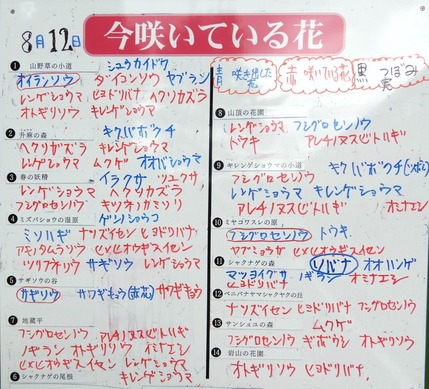 8月12日
今咲いている花
青 咲き出した花
赤 咲いている花
黒 つぼみ 実
❶ 山野草の小道
シュウカイドウ
オイランソウ ダイコンソウ ヤブラン
レンゲショウマ ヒヨドリバナ ヘクソカズラ
オトギリソウ キレンゲショウマ
❷ 升麻の森
キクバボウチ
ヘクソカズラ キレンゲショウマ
レンゲショウマ ムクゲ オオバショウマ
❸ 春の妖精
イラクサ ツユクサ
レンゲショウマ ヘクソカズラ
フシグロセンノウ キツネノカミソリ
❹ ミズバショウの湿原
ゲンノショウコ
ミソハギ ナツズイセン ヒヨドリバナ
アキノタムラソウ ヒメヒオウギズイセン
ツリフネソウ サギソウ レンゲショウマ
❺ サギソウの谷
サギソウ サワギキョウ(赤花) サワギキョウ
❼ 地蔵平
フシグロセンノウ アレチノヌスビトハギ
ノギラン オトギリソウ オミナエシ
ヒメヒオウギズイセン レンゲショウマ
❻ シャクナゲの尾根
キレンゲショウマ
❽ 山頂の花園
レンゲショウマ フシグロセンノウ
トウキ アレチノヌスビトハギ
❾ キレンゲショウマの小道
キクバボウチ(つぼみ)
フシグロセンノウ
レンゲショウマ キレンゲショウマ
アレチノヌスビトハギ オミナエシ
❿ ミヤコワスレの原
フシグロセンノウ トウキ
ヒメヒオウギズイセン
⓫ シャクナゲの森
ソバナ オオハンゲ
マツヨイグサ ノギラン オミナエシ
ヒヨドリバナ
⓬ ベニバナヤマシャクヤクの丘
ナツズイセン ヒヨドリバナ フシグロセンノウ
⓭ サンシュユの森
ムクゲ
フシグロセンノウ ギボウシ オトギリソウ
⓮ 岩山の花園
オトギリソウ ヒヨドリバナ